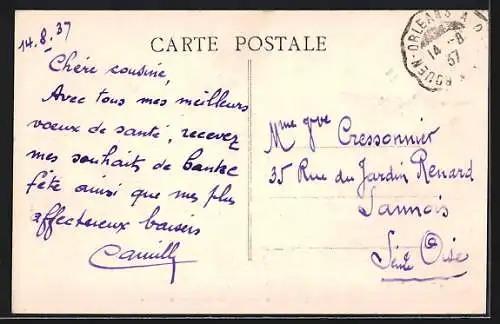 14.8.37
CARTE POSTALE
ROUEN-ORLEANS A
14-8
37
Chère cousine,
Avec tous mes meilleurs
voeux de santé, recevez
mes souhaits de bonne
fête ainsi que mes plus
affectueux baisers
Camille
Mme Gve Cressonnier
35 Rue du Jardin Renard
Sannois
Seine Oise